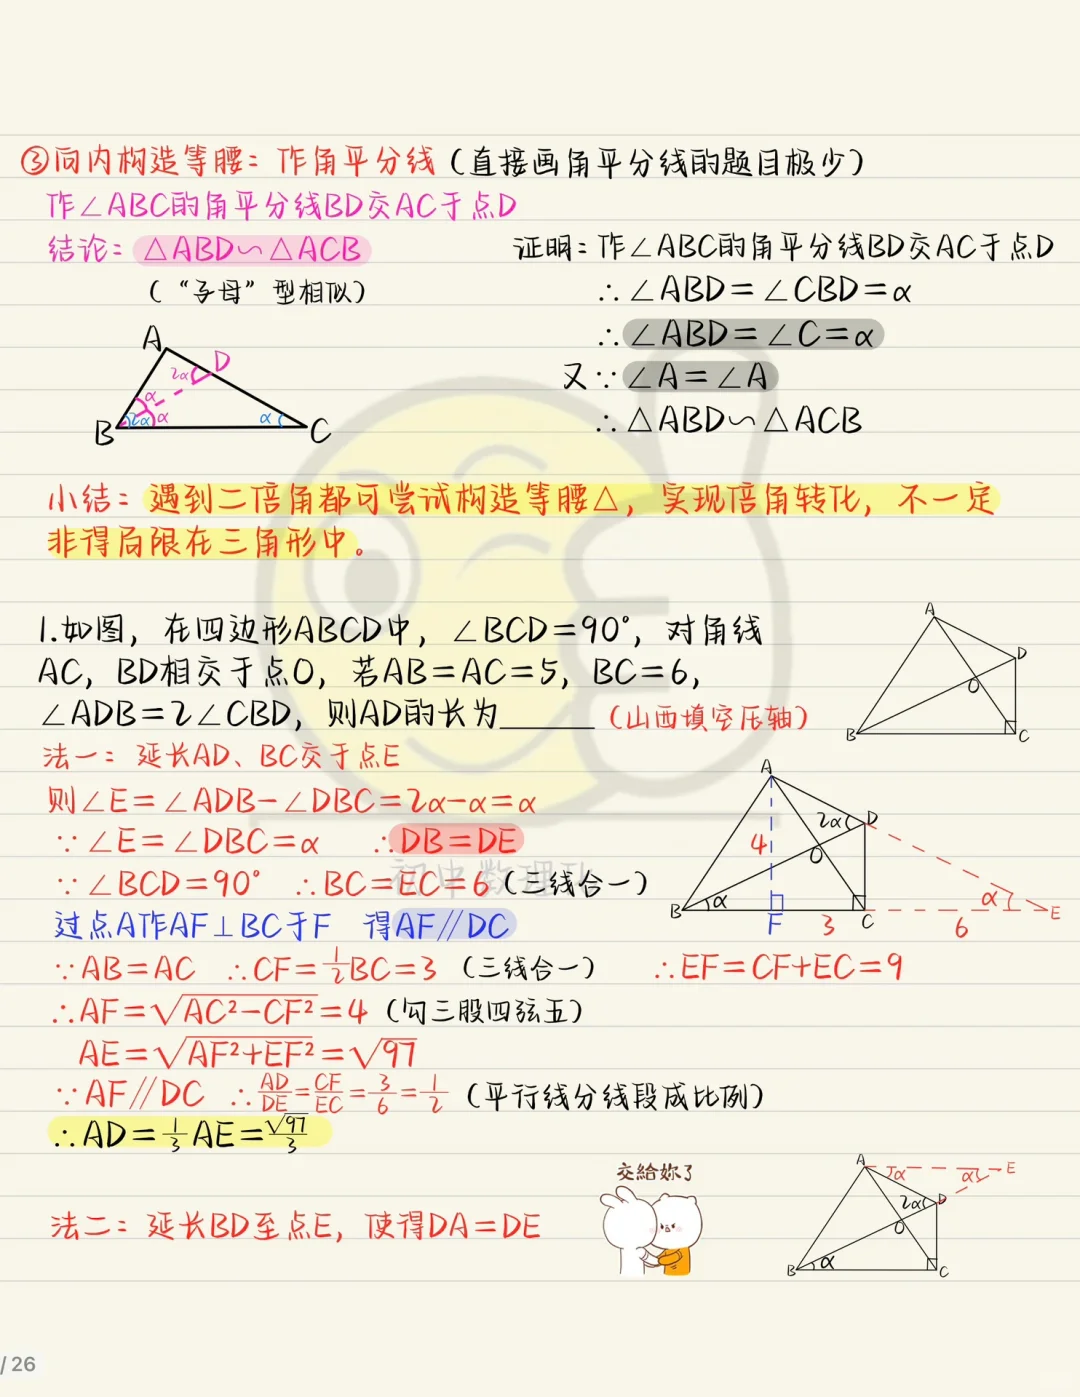 ③向内构造等腰：作角平分线（直接画角平分线的题目极少）
作∠ABC的角平分线BD交AC于点D
结论：△ABD∽△ACB
（“子母”型相似）
证明：作∠ABC的角平分线BD交AC于点D
∴∠ABD=∠CBD=α
∴∠ABD=∠C=α
又∵∠A=∠A
∴△ABD∽△ACB
A
D
2α
α
2α
α
α
B
C
小结：遇到二倍角都可尝试构造等腰△，实现倍角转化，不一定
非得局限在三角形中。
1.如图，在四边形ABCD中，∠BCD=90°，对角线
AC，BD相交于点O，若AB=AC=5，BC=6，
∠ADB=2∠CBD，则AD的长为______（山西填空压轴）
A
D
O
B
C
法一：延长AD、BC交于点E
则∠E=∠ADB-∠DBC=2α-α=α
∵∠E=∠DBC=α ∴DB=DE
∵∠BCD=90° ∴BC=EC=6（三线合一）
过点A作AF⊥BC于F 得AF∥DC
∵AB=AC ∴CF=1/2BC=3（三线合一） ∴EF=CF+EC=9
∴AF=√AC²-CF²=4（勾三股四弦五）
AE=√AF²+EF²=√97
∵AF∥DC ∴AD/DE=CF/EC=3/6=1/2（平行线分线段成比例）
∴AD=1/3AE=√97/3
A
2α
D
4
O
α
α
B
F
3
C
6
E
初中数理化
法二：延长BD至点E，使得DA=DE
交給妳了
A
α
α
E
2α
D
O
B
α
C
/ 26